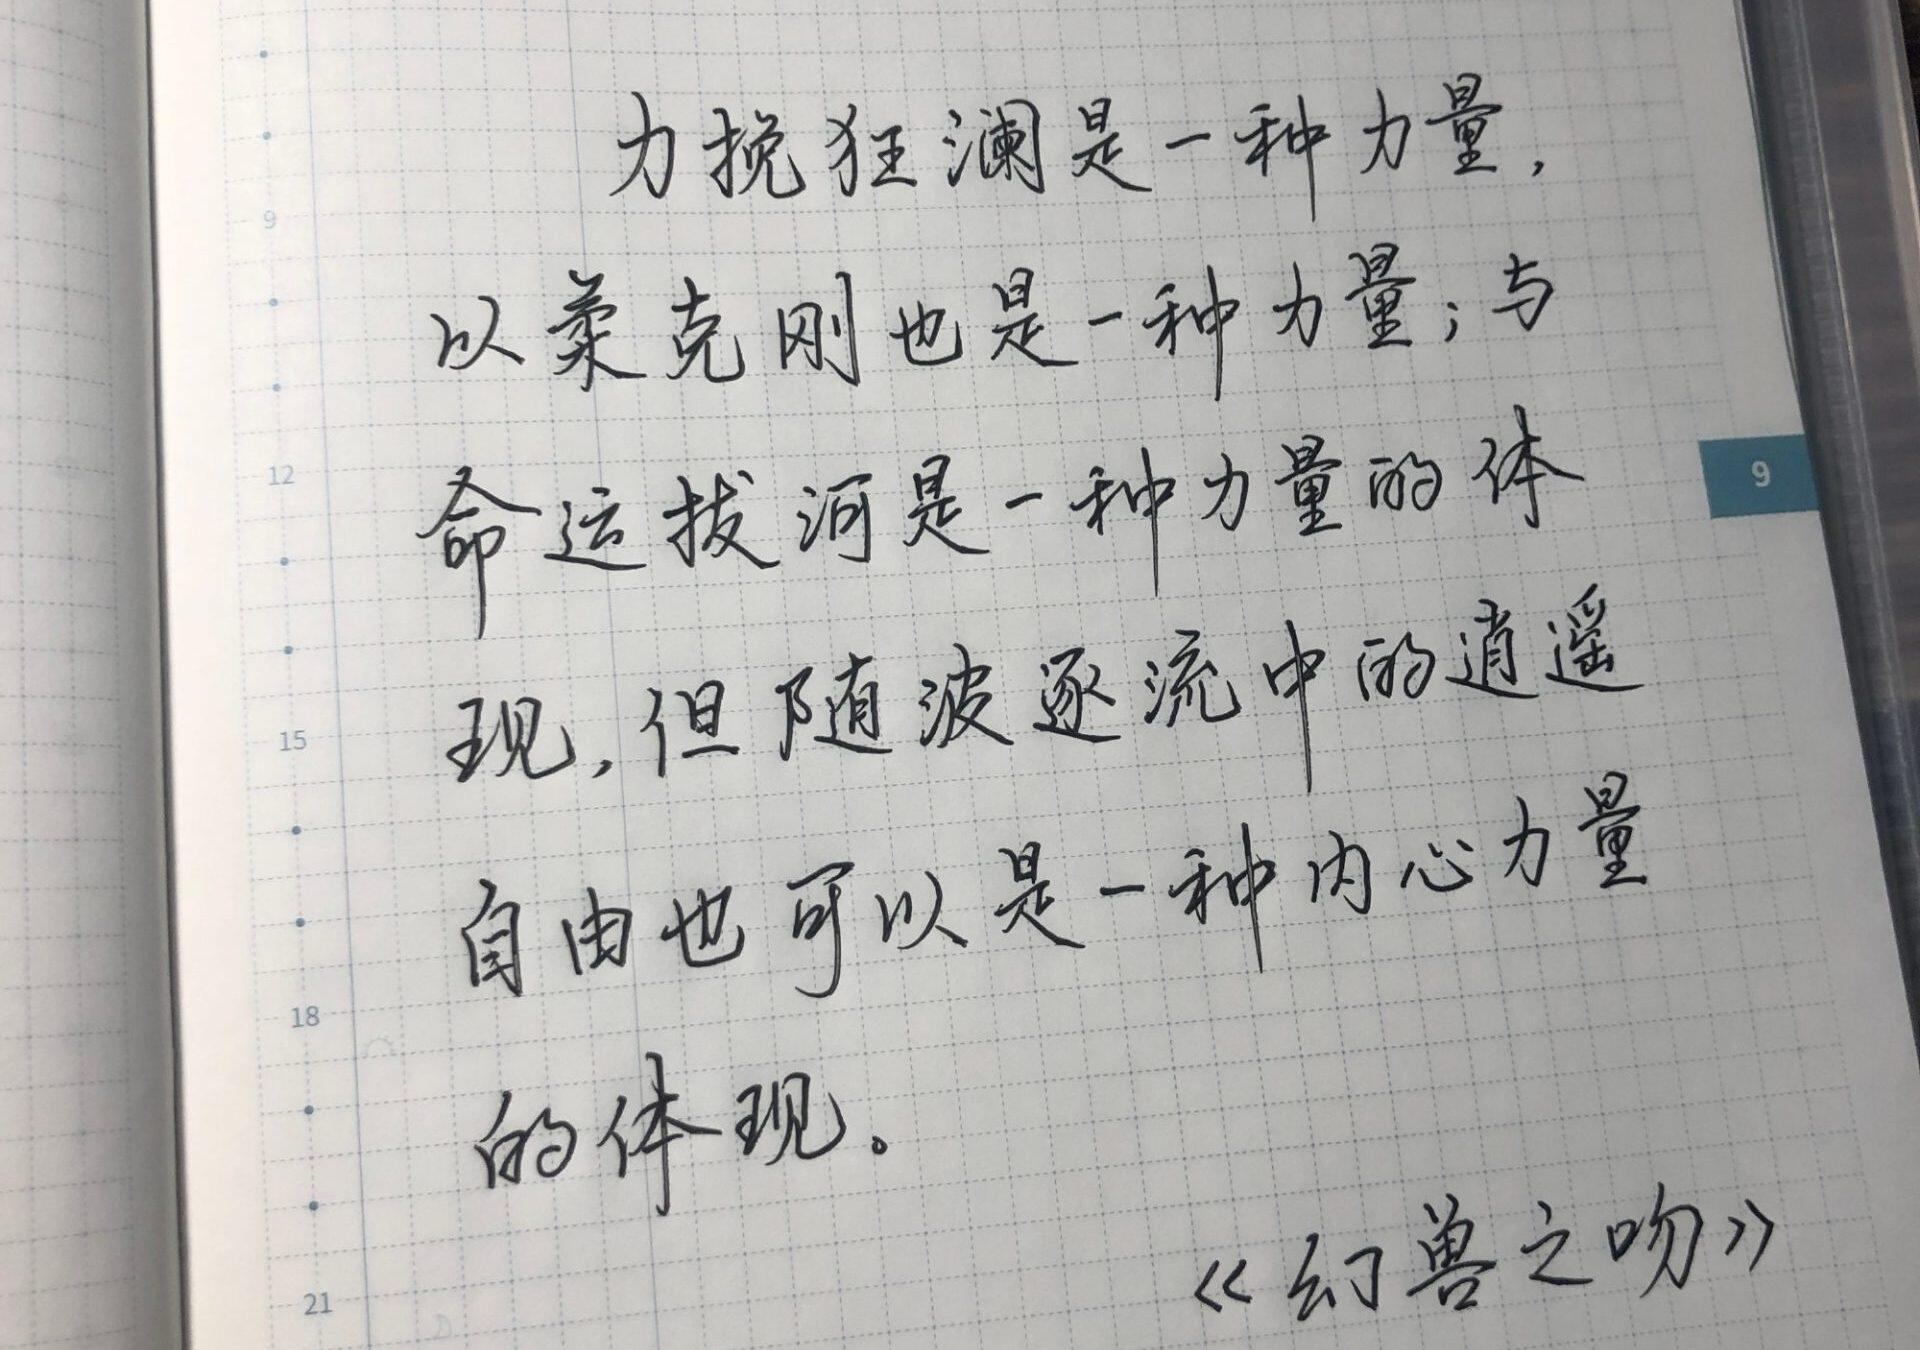 力挽狂澜是一种力量,
以柔克刚也是一种力量;与
命运拔河是一种力量的体
现,但随波逐流中的逍遥
自由也可以是一种内心力量
的体现。
《幻兽之吻》
9
12
15
18
21
9